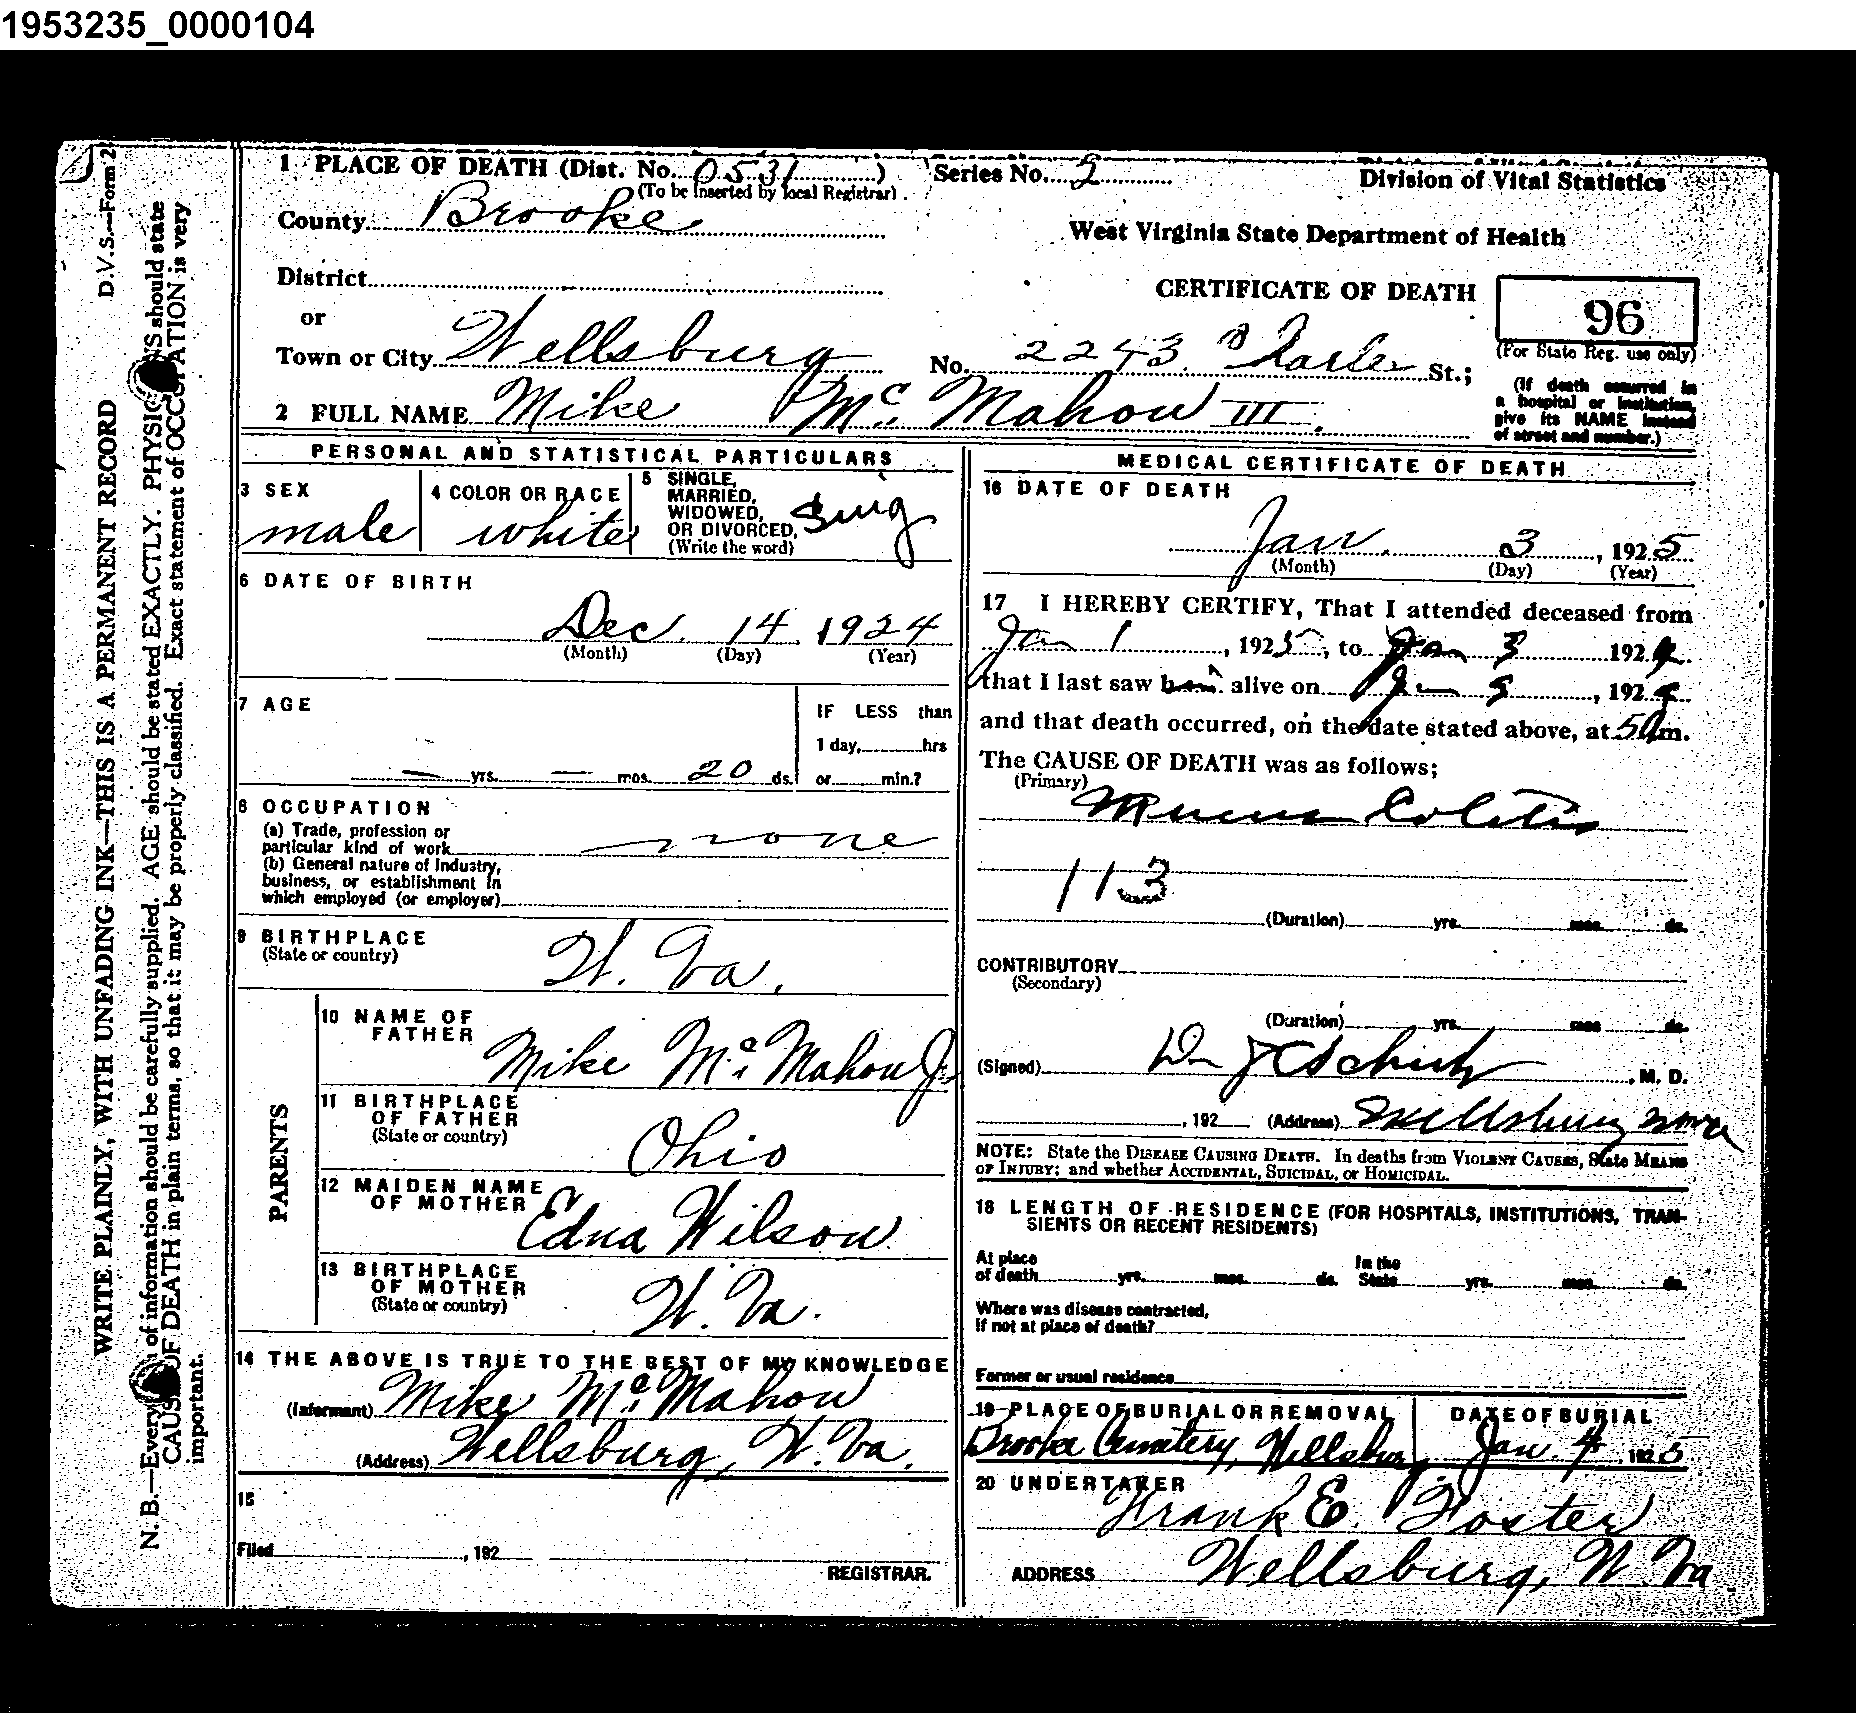 1953235_0000104
D.V.S.—Form 2
WRITE PLAINLY, WITH UNFADING INK—THIS IS A PERMANENT RECORD
N. B.—Every of information should be carefully supplied. AGE should be stated EXACTLY. PHYSIC NS should state
CAUS OF DEATH in plain terms, so that it may be properly classified. Exact statement of OCCUPATION is very
important.
1 PLACE OF DEATH (Dist. No. 0531) Series No. 2
(To be inserted by local Registrar)
Division of Vital Statistics
County Brooke
West Virginia State Department of Health
District
CERTIFICATE OF DEATH
96
(For State Reg. use only)
or
Town or City Wellsburg No. 2243 Charles St.;
(If death occurred in
a hospital or institution,
give its NAME instead
of street and number.)
2 FULL NAME Mike Mc Mahon III.
PERSONAL AND STATISTICAL PARTICULARS
3 SEX
male
4 COLOR OR RACE
white
5 SINGLE,
MARRIED,
WIDOWED,
OR DIVORCED,
(Write the word)
Sing
6 DATE OF BIRTH
Dec. 14 1924
(Month) (Day) (Year)
7 AGE
— yrs. — mos. 20 ds.
IF LESS than
1 day, hrs
or min.?
8 OCCUPATION
(a) Trade, profession or
particular kind of work none
(b) General nature of industry,
business, or establishment in
which employed (or employer)
9 BIRTHPLACE
(State or country)
W. Va.
PARENTS
10 NAME OF
FATHER
Mike Mc Mahon Jr
11 BIRTHPLACE
OF FATHER
(State or country)
Ohio
12 MAIDEN NAME
OF MOTHER
Edna Wilson
13 BIRTHPLACE
OF MOTHER
(State or country)
W. Va.
14 THE ABOVE IS TRUE TO THE BEST OF MY KNOWLEDGE
(Informant) Mike Mc Mahon
(Address) Wellsburg, W. Va.
15
Filed , 192
REGISTRAR.
MEDICAL CERTIFICATE OF DEATH
16 DATE OF DEATH
Jan. 3, 1925
(Month) (Day) (Year)
17 I HEREBY CERTIFY, That I attended deceased from
Jan 1, 1925, to Jan 3 1924
that I last saw h alive on Jan 3, 1924
and that death occurred, on the date stated above, at 5 m.
The CAUSE OF DEATH was as follows;
(Primary)
Mucus Colitis
113
(Duration) yrs. mos. ds.
CONTRIBUTORY
(Secondary)
(Duration) yrs. mos. ds.
(Signed) , M. D.
, 192 (Address) Wellsburg W Va
NOTE: State the DISEASE CAUSING DEATH. In deaths from VIOLENT CAUSES, State MEANS
OF INJURY; and whether ACCIDENTAL, SUICIDAL, or HOMICIDAL.
18 LENGTH OF RESIDENCE (FOR HOSPITALS, INSTITUTIONS, TRAN-
SIENTS OR RECENT RESIDENTS)
At place
of death yrs. mos. ds.
In the
State yrs. mos. ds.
Where was disease contracted,
if not at place of death?
Former or usual residence
19 PLACE OF BURIAL OR REMOVAL
Brooke Cemetery, Wellsburg
DATE OF BURIAL
Jan. 4, 1925
20 UNDERTAKER
Frank E. Foster
ADDRESS Wellsburg, W. Va